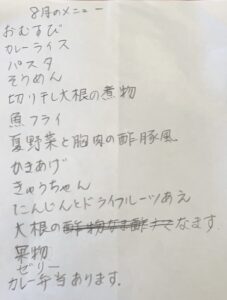 8月のメニュー
おむすび
カレーライス
パスタ
そうめん
切り干し大根の煮物
魚フライ
夏野菜と胸肉の酢豚風
かきあげ
きゅうちゃん
にんじんとドライフルーツあえ
大根のなます
果物
ゼリー
カレー弁当あります.